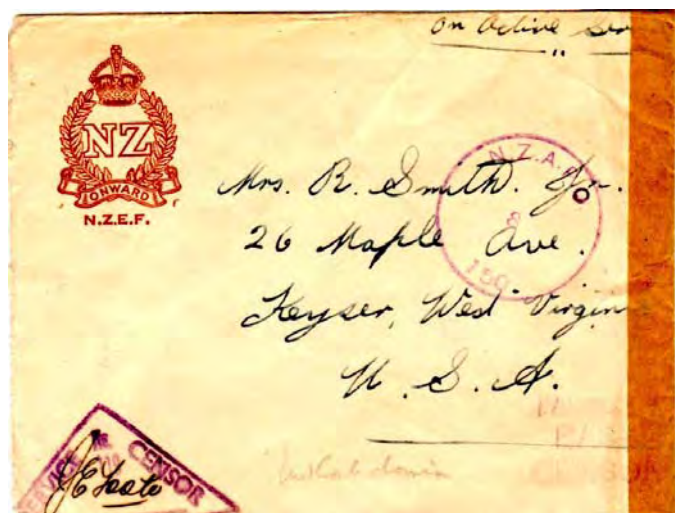 On Active
NZ
ONWARD
N.Z.E.F.
N.Z.A.P.O
150
Mrs. R. Smith. Jr.
26 Maple Ave.
Keyser, West Virgin
U. S. A.
CENSOR